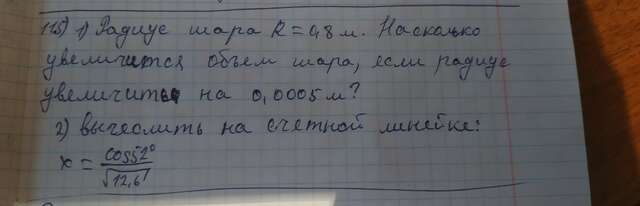 115) 1) Радиус шара R = 0,8 м. Насколько
увеличится объем шара, если радиус
увеличить на 0,0005 м?
2) вычеслить на счетной линейке:
x = cos52° / √12,6